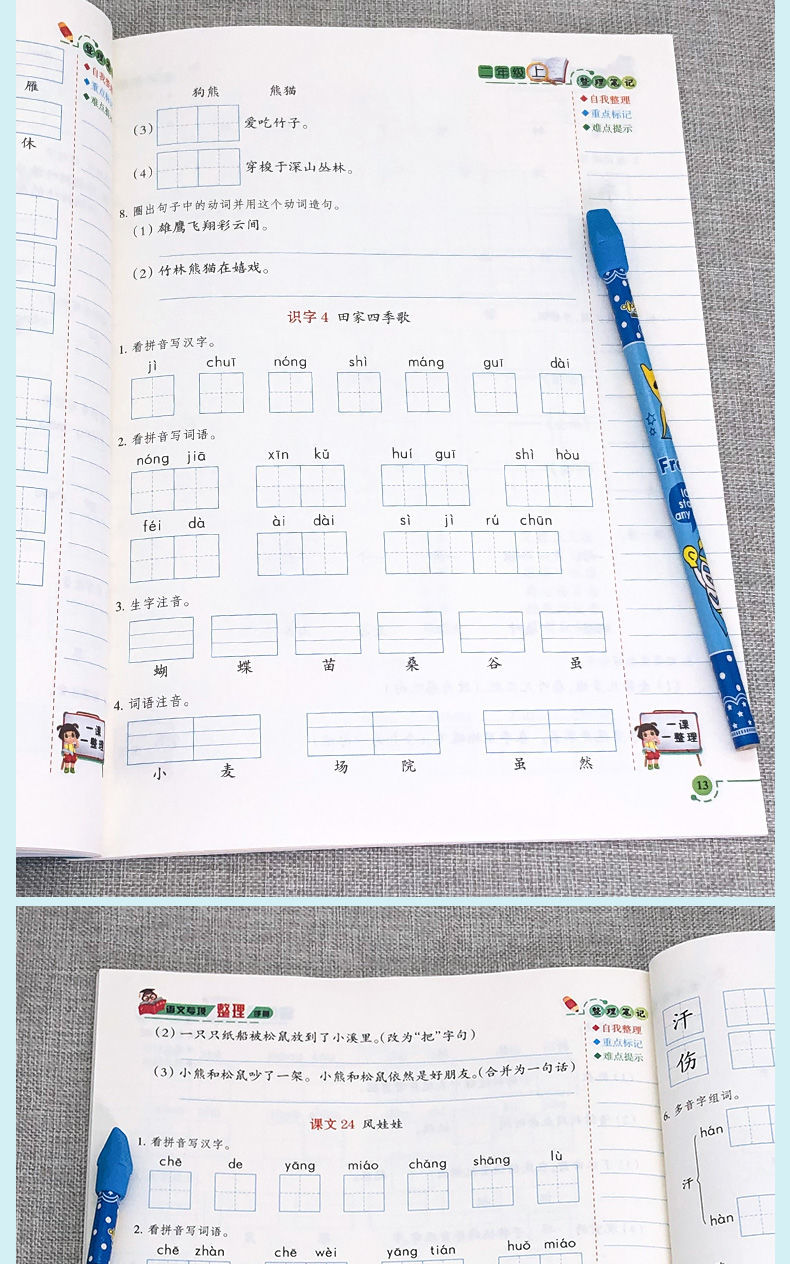 雁
休
二年级 上
整理笔记
自我整理
重点标记
难点提示
狗熊 熊猫
(3) 爱吃竹子。
(4) 穿梭于深山丛林。
8. 圈出句子中的动词并用这个动词造句。
(1) 雄鹰飞翔彩云间。
(2) 竹林熊猫在嬉戏。
识字 4 田家四季歌
1. 看拼音写汉字。
jì chuī nóng shì máng guī dài
2. 看拼音写词语。
nóng jiā xīn kǔ huí guī shì hòu
féi dà ài dài sì jì rú chūn
3. 生字注音。
蝴 蝶 苗 桑 谷 虽
4. 词语注音。
小 麦 场 院 虽 然
一课
一整理
一课
一整理
13
语文专项 整理
整理笔记
自我整理
重点标记
难点提示
(2) 一只只纸船被松鼠放到了小溪里。(改为“把”字句)
(3) 小熊和松鼠吵了一架。小熊和松鼠依然是好朋友。(合并为一句话)
课文 24 风娃娃
1. 看拼音写汉字。
chē de yāng miáo chǎng shāng lù
2. 看拼音写词语。
chē zhàn chē wèi yāng tián huǒ miáo
汗
伤
6. 多音字组词。
hán
汗
hàn